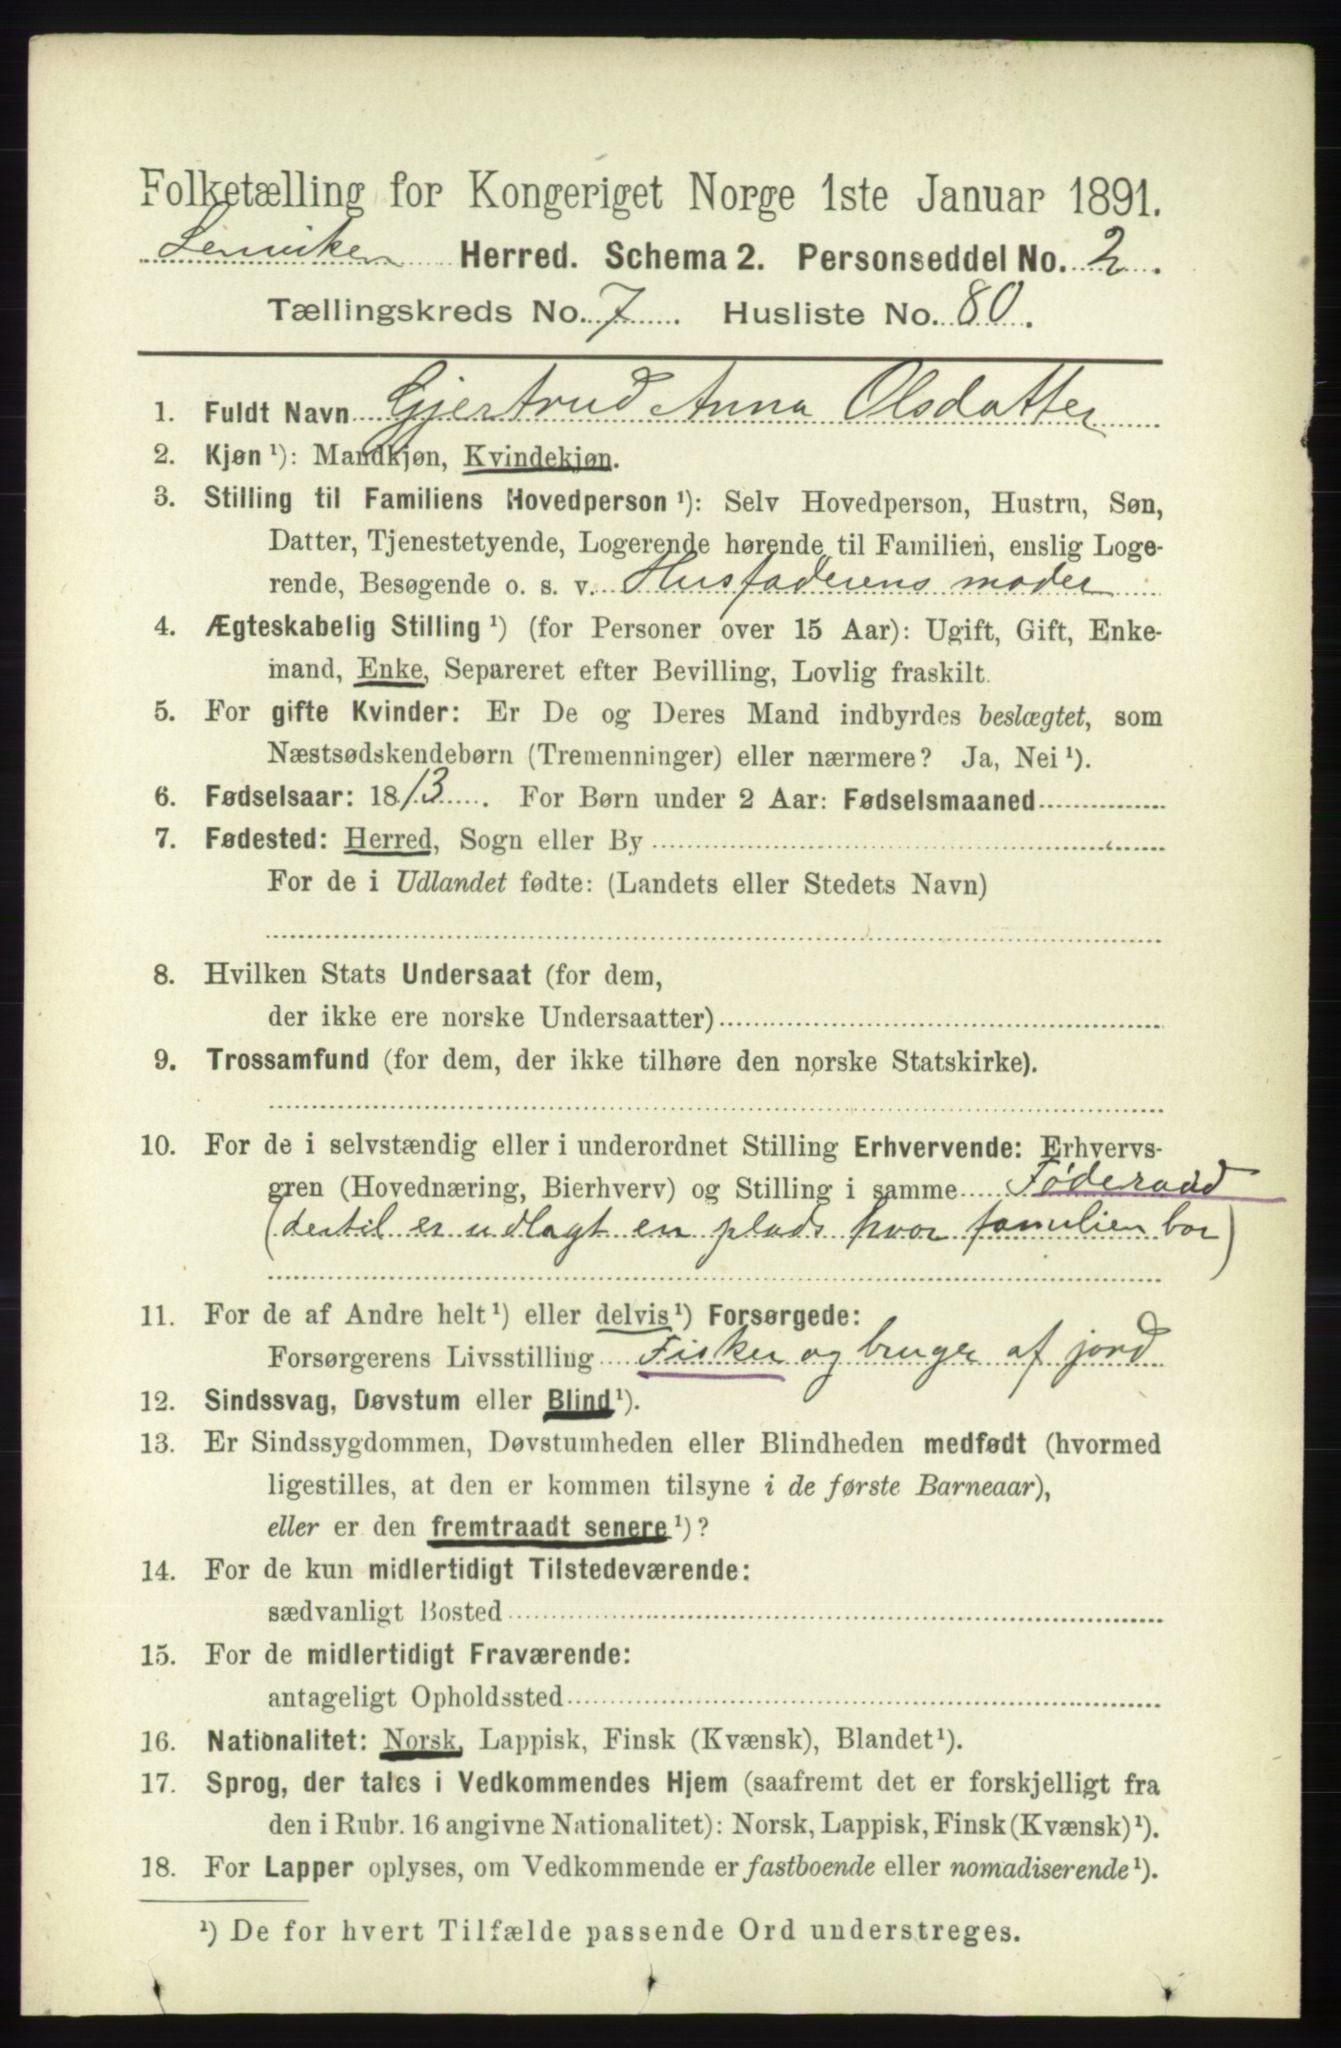 Folketælling for Kongeriget Norge 1ste Januar 1891.
Lenviken Herred. Schema 2. Personseddel No. 2.
Tællingskreds No. 7. Husliste No. 80.
1. Fuldt Navn Gjertrud Anna Olsdatter
2. Kjøn ¹): Mandkjøn, Kvindekjøn.
3. Stilling til Familiens Hovedperson ¹): Selv Hovedperson, Hustru, Søn,
Datter, Tjenestetyende, Logerende hørende til Familien, enslig Loge-
rende, Besøgende o. s. v. Husfaderens moder
4. Ægteskabelig Stilling ¹) (for Personer over 15 Aar): Ugift, Gift, Enke-
mand, Enke, Separeret efter Bevilling, Lovlig fraskilt.
5. For gifte Kvinder: Er De og Deres Mand indbyrdes beslægtet, som
Næstsødskendebørn (Tremenninger) eller nærmere? Ja, Nei ¹).
6. Fødselsaar: 1813. For Børn under 2 Aar: Fødselsmaaned
7. Fødested: Herred, Sogn eller By
For de i Udlandet fødte: (Landets eller Stedets Navn)
8. Hvilken Stats Undersaat (for dem,
der ikke ere norske Undersaatter)
9. Trossamfund (for dem, der ikke tilhøre den norske Statskirke).
10. For de i selvstændig eller i underordnet Stilling Erhvervende: Erhvervs-
gren (Hovednæring, Bierhverv) og Stilling i samme Føderaad
(dertil er udlagt en plads hvor familien bor)
11. For de af Andre helt ¹) eller delvis ¹) Forsørgede:
Forsørgerens Livsstilling Fisker og bruger af jord
12. Sindssvag, Døvstum eller Blind ¹).
13. Er Sindssygdommen, Døvstumheden eller Blindheden medfødt (hvormed
ligestilles, at den er kommen tilsyne i de første Barneaar),
eller er den fremtraadt senere ¹)?
14. For de kun midlertidigt Tilstedeværende:
sædvanligt Bosted
15. For de midlertidigt Fraværende:
antageligt Opholdssted
16. Nationalitet: Norsk, Lappisk, Finsk (Kvænsk), Blandet ¹).
17. Sprog, der tales i Vedkommendes Hjem (saafremt det er forskjelligt fra
den i Rubr. 16 angivne Nationalitet): Norsk, Lappisk, Finsk (Kvænsk) ¹).
18. For Lapper oplyses, om Vedkommende er fastboende eller nomadiserende ¹).
¹) De for hvert Tilfælde passende Ord understreges.